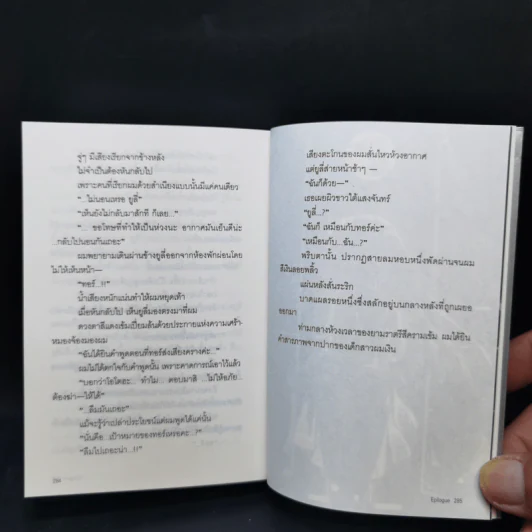 จู่ๆ มีเสียงเรียกจากข้างหลัง
ไม่จำเป็นต้องหันกลับไป
เพราะคนที่เรียกผมด้วยสำเนียงแบบนั้นมีแค่คนเดียว
“...ไม่นอนเหรอ ยูลี่”
“เห็นยังไม่กลับมาสักที ก็เลย...”
“... ขอโทษที่ทำให้เป็นห่วงนะ อากาศมันเย็นดีน่ะ
...กลับไปนอนกันเถอะ”
ผมพยายามเดินผ่านข้างยูลี่ออกจากห้องพักผ่อนโดย
ไม่ให้เห็นหน้า—
“ทอร์...!!”
น้ำเสียงหนักแน่นทำให้ผมหยุดเท้า
เมื่อหันกลับไป เห็นยูลี่มองตรงมาที่ผม
ดวงตาสีแดงเข้มเปี่ยมล้นด้วยประกายแห่งความเศร้า
หมองจ้องมองผม
“ฉันได้ยินคำพูดตอนที่ทอร์ส่งเสียงครางค่ะ...”
ผมไม่ได้ตกใจกับคำพูดนั้น เพราะคาดการณ์เอาไว้แล้ว
“บอกว่าโอโตฮะ... ทำไม... ตอบมาสิ ...ไม่ให้อภัย...
ต้องฆ่า—ให้ได้”
“...ลืมมันเถอะ”
แม้จะรู้ว่าเปล่าประโยชน์แต่ผมพูดได้แค่นั้น
“นั่นคือ...เป้าหมายของทอร์เหรอคะ...?”
“ลืมไปเถอะน่า...!!”
284
เสียงตะโกนของผมสั่นไหวห้วงอากาศ
แต่ยูลี่ส่ายหน้าช้าๆ —
“ฉันก็ด้วย—”
เธอเผยผิวขาวใต้แสงจันทร์
“ยูลี่...?”
“ฉันก็ เหมือนกับทอร์ค่ะ”
“เหมือนกับ...ฉัน...?”
พริบตานั้น ปรากฏสายลมหอบหนึ่งพัดผ่านจนผม
สีเงินลอยพลิ้ว
แผ่นหลังสั่นระริก
บาดแผลรอยหนึ่งซึ่งสลักอยู่บนกลางหลังที่ถูกเผยอ
ออกมา
ท่ามกลางห้วงเวลาของยามราตรีสีครามเข้ม ผมได้ยิน
คำสารภาพจากปากของเด็กสาวผมเงิน
Epilogue 285